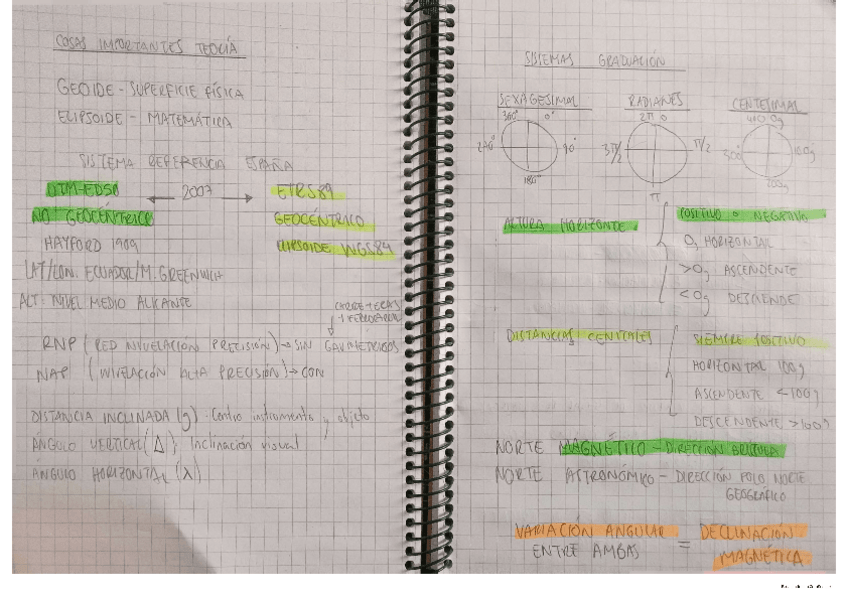 COSAS IMPORTANTES TEORÍA
GEOIDE - SUPERFICIE FÍSICA
ELIPSOIDE - MATEMÁTICA
SISTEMA REFERENCIA ESPAÑA
UTM-ED50 2007 ETRS89
NO GEOCÉNTRICO GEOCÉNTRICO
HAYFORD 1909 ELIPSOIDE WGS84
LAT/LON. ECUADOR/M. GREENWICH
ALT: NIVEL MEDIO ALICANTE
CARRETERAS
Y FERROCARRIL
RNP (RED NIVELACIÓN PRECISIÓN) → SIN GRAVIMÉTRICOS
NAP (NIVELACIÓN ALTA PRECISIÓN) → CON
DISTANCIA INCLINADA (g). Centro instrumento y objeto
ÁNGULO VERTICAL (Δ) Inclinación visual
ÁNGULO HORIZONTAL (λ)
SISTEMAS GRADUACIÓN
SEXAGESIMAL RADIANES CENTESIMAL
360° 0° 2π 0 400 0g
270° 90° 3π/2 π/2 300g 100g
180° π 200g
ALTURA HORIZONTE
POSITIVO O NEGATIVO
0g HORIZONTAL
>0g ASCENDENTE
<0g DESCIENDE
DISTANCIAS CENITALES
SIEMPRE POSITIVO
HORIZONTAL 100g
ASCENDENTE <100g
DESCENDENTE >100g
NORTE MAGNÉTICO - DIRECCIÓN BRÚJULA
NORTE ASTRONÓMICO - DIRECCIÓN POLO NORTE
GEOGRÁFICO
VARIACIÓN ANGULAR = DECLINACIÓN
ENTRE AMBAS MAGNÉTICA